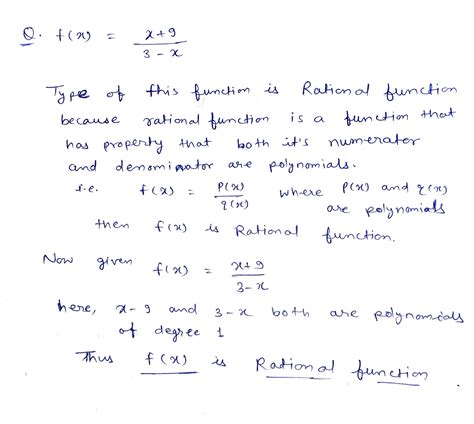 Q. f(x) = x+9 / 3-x
Type of this function is Rational function
because rational function is a function that
has property that both it's numerater
and denominator are polynomials.
i.e. f(x) = P(x) / q(x) where P(x) and q(x)
are polynomials
then f(x) is Rational function.
Now given f(x) = x+9 / 3-x
here, x-9 and 3-x both are polynomials
of degree 1
Thus f(x) is Rational function